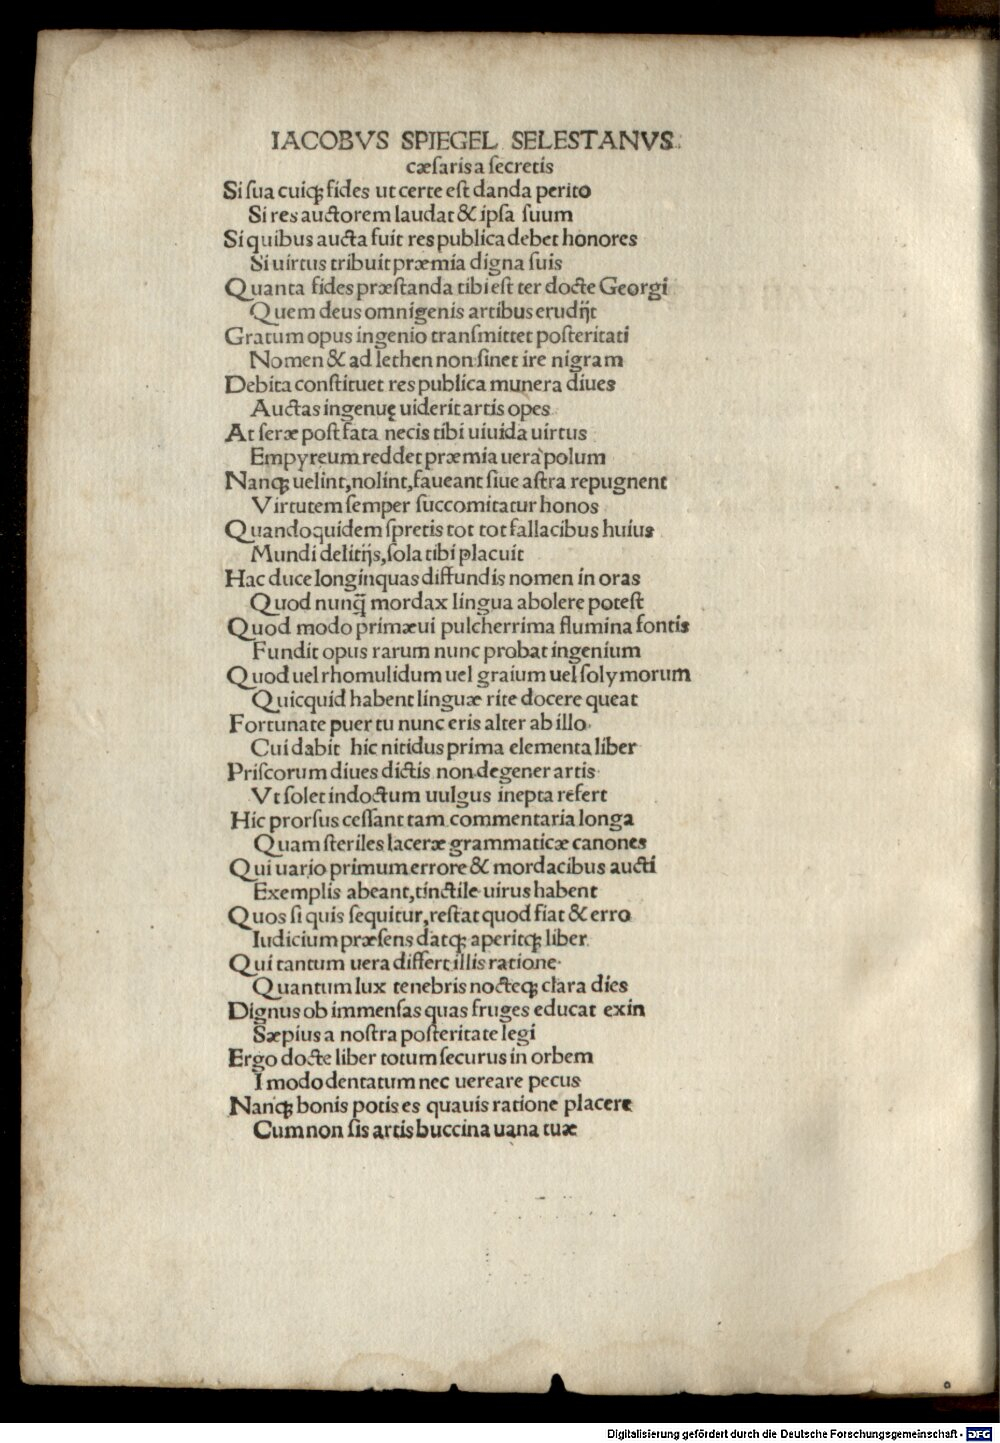 IACOBVS SPIEGEL SELESTANVS.
cæſaris a ſecretis
Si ſua cuiqꝫ fides ut certe eſt danda perito
Si res auctorem laudat & ipſa ſuum
Si quibus aucta fuit res publica debet honores
Si uirtus tribuit præmia digna ſuis
Quanta fides præſtanda tibi eſt ter docte Georgi
Quem deus omnigenis artibus erudijt
Gratum opus ingenio tranſmittet poſteritati
Nomen & ad lethen non ſinet ire nigram
Debita conſtituet res publica munera diues
Auctas ingenuę uiderit artis opes
At ſeræ poſt fata necis tibi uiuida uirtus
Empyreum reddet præmia uera polum
Nanqꝫ uelint, nolint, faueant ſiue aſtra repugnent
Virtutem ſemper ſuccomitatur honos
Quandoquidem ſpretis tot tot fallacibus huius
Mundi delitijs, ſola tibi placuit
Hac duce longinquas diffundis nomen in oras
Quod nunq̃ mordax lingua abolere poteſt
Quod modo primæui pulcherrima flumina fontis
Fundit opus rarum nunc probat ingenium
Quod uel rhomulidum uel graium uel ſolymorum
Quicquid habent linguæ rite docere queat
Fortunate puer tu nunc eris alter ab illo
Cui dabit hic nitidus prima elementa liber
Priſcorum diues dictis non degener artis
Vt ſolet indoctum uulgus inepta refert
Hic prorſus ceſſant tam commentaria longa
Quam ſteriles laceræ grammaticæ canones
Qui uario primum errore & mordacibus aucti
Exemplis abeant, tinctile uirus habent
Quos ſi quis ſequitur, reſtat quod fiat & erro
Iudicium præſens datqꝫ aperitqꝫ liber.
Qui tantum uera differt illis ratione.
Quantum lux tenebris nocteqꝫ clara dies
Dignus ob immenſas quas fruges educat exin
Sæpius a noſtra poſteritate legi
Ergo docte liber totum ſecurus in orbem
I modo dentatum nec uereare pecus
Nanqꝫ bonis potis es quauis ratione placere
Cum non ſis artis buccina uana tuæ
Digitalisierung gefördert durch die Deutsche Forschungsgemeinschaft - DFG